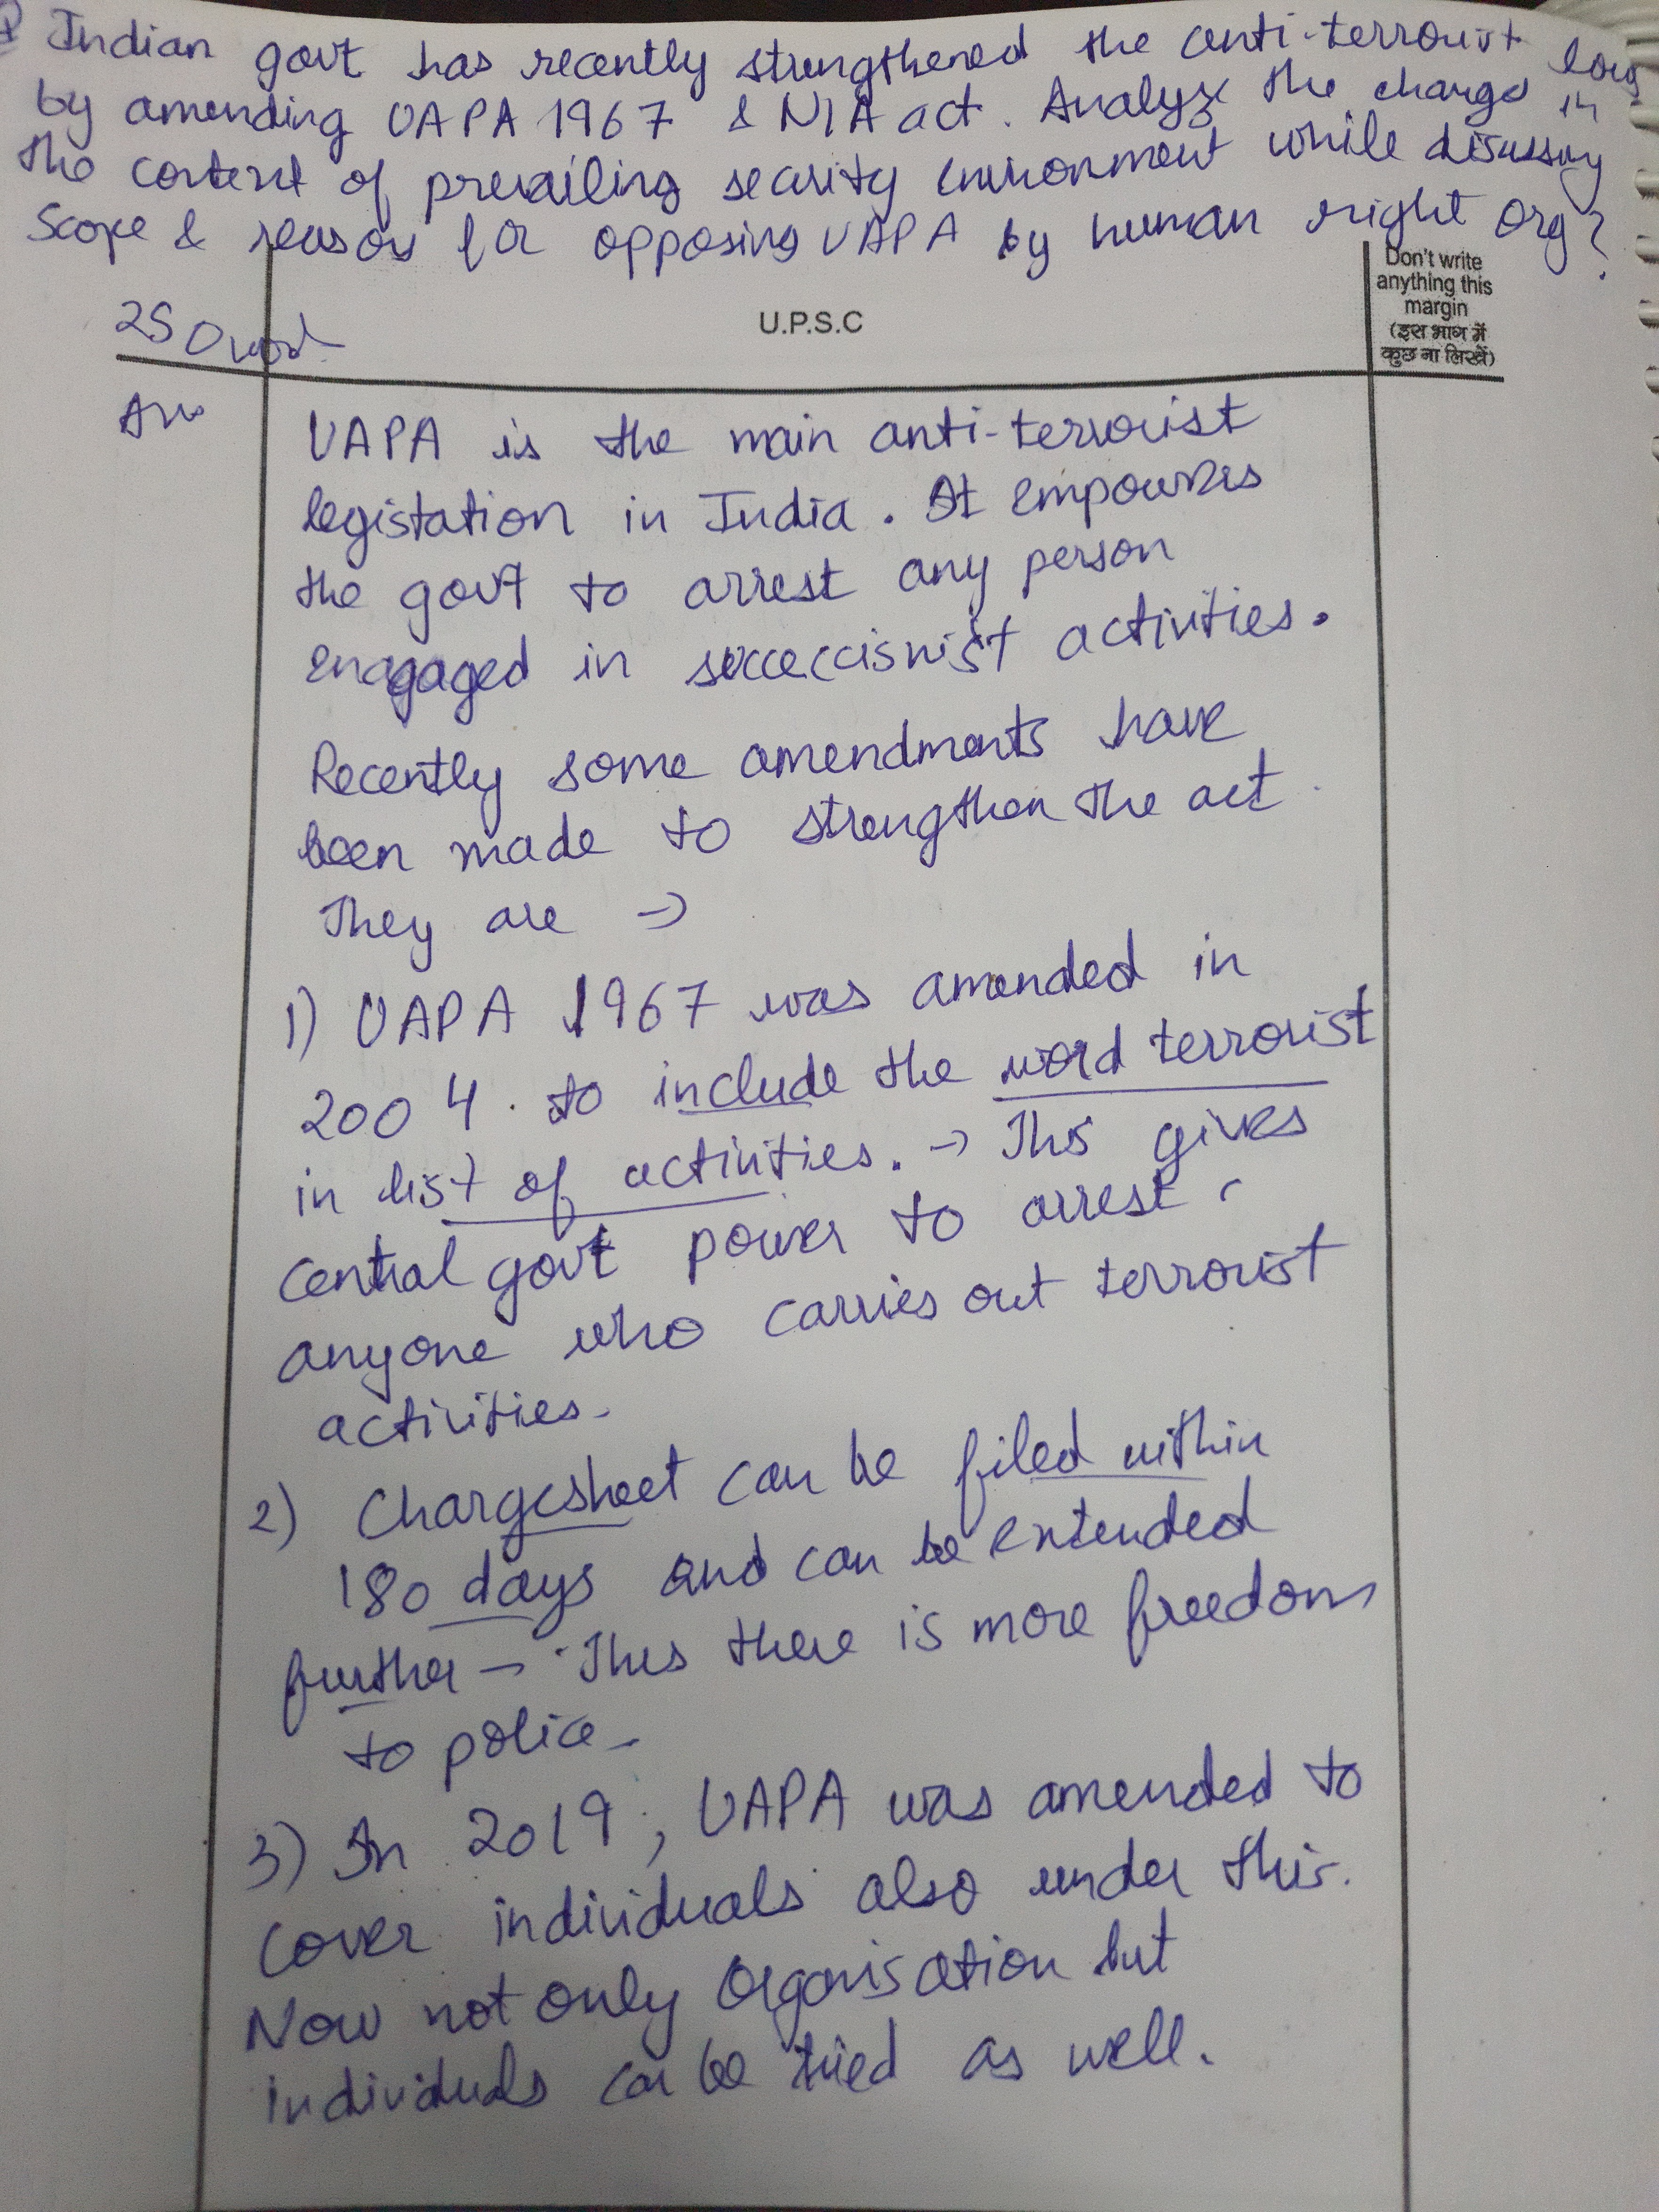 Indian govt has recently strengthened the anti-terrorist laws
by amending UAPA 1967 & NIA act. Analyze the change in
the context of prevailing security environment while disussing
Scope & reason for opposing UAPA by human right org?
Don't write
anything this
margin
(इस भाग में
कुछ ना लिखें)
U.P.S.C
250 word
Ans
UAPA is the main anti-terrorist
legistation in India. It empowers
the govt to arrest any person
enagaged in succeccisnist activities.
Recently some amendments have
been made to strengthen the act.
They are →
1) UAPA 1967 was amended in
2004 to include the word terrorist
in list of activities. → This gives
Central govt power to arrest
anyone who carries out terrorist
activities.
2) Chargesheet can be filed within
180 days and can be extended
further – Thus there is more freedom
to police –
3) In 2019, UAPA was amended to
cover individuals also under this.
Now not only Organisation but
individuals can be tried as well.